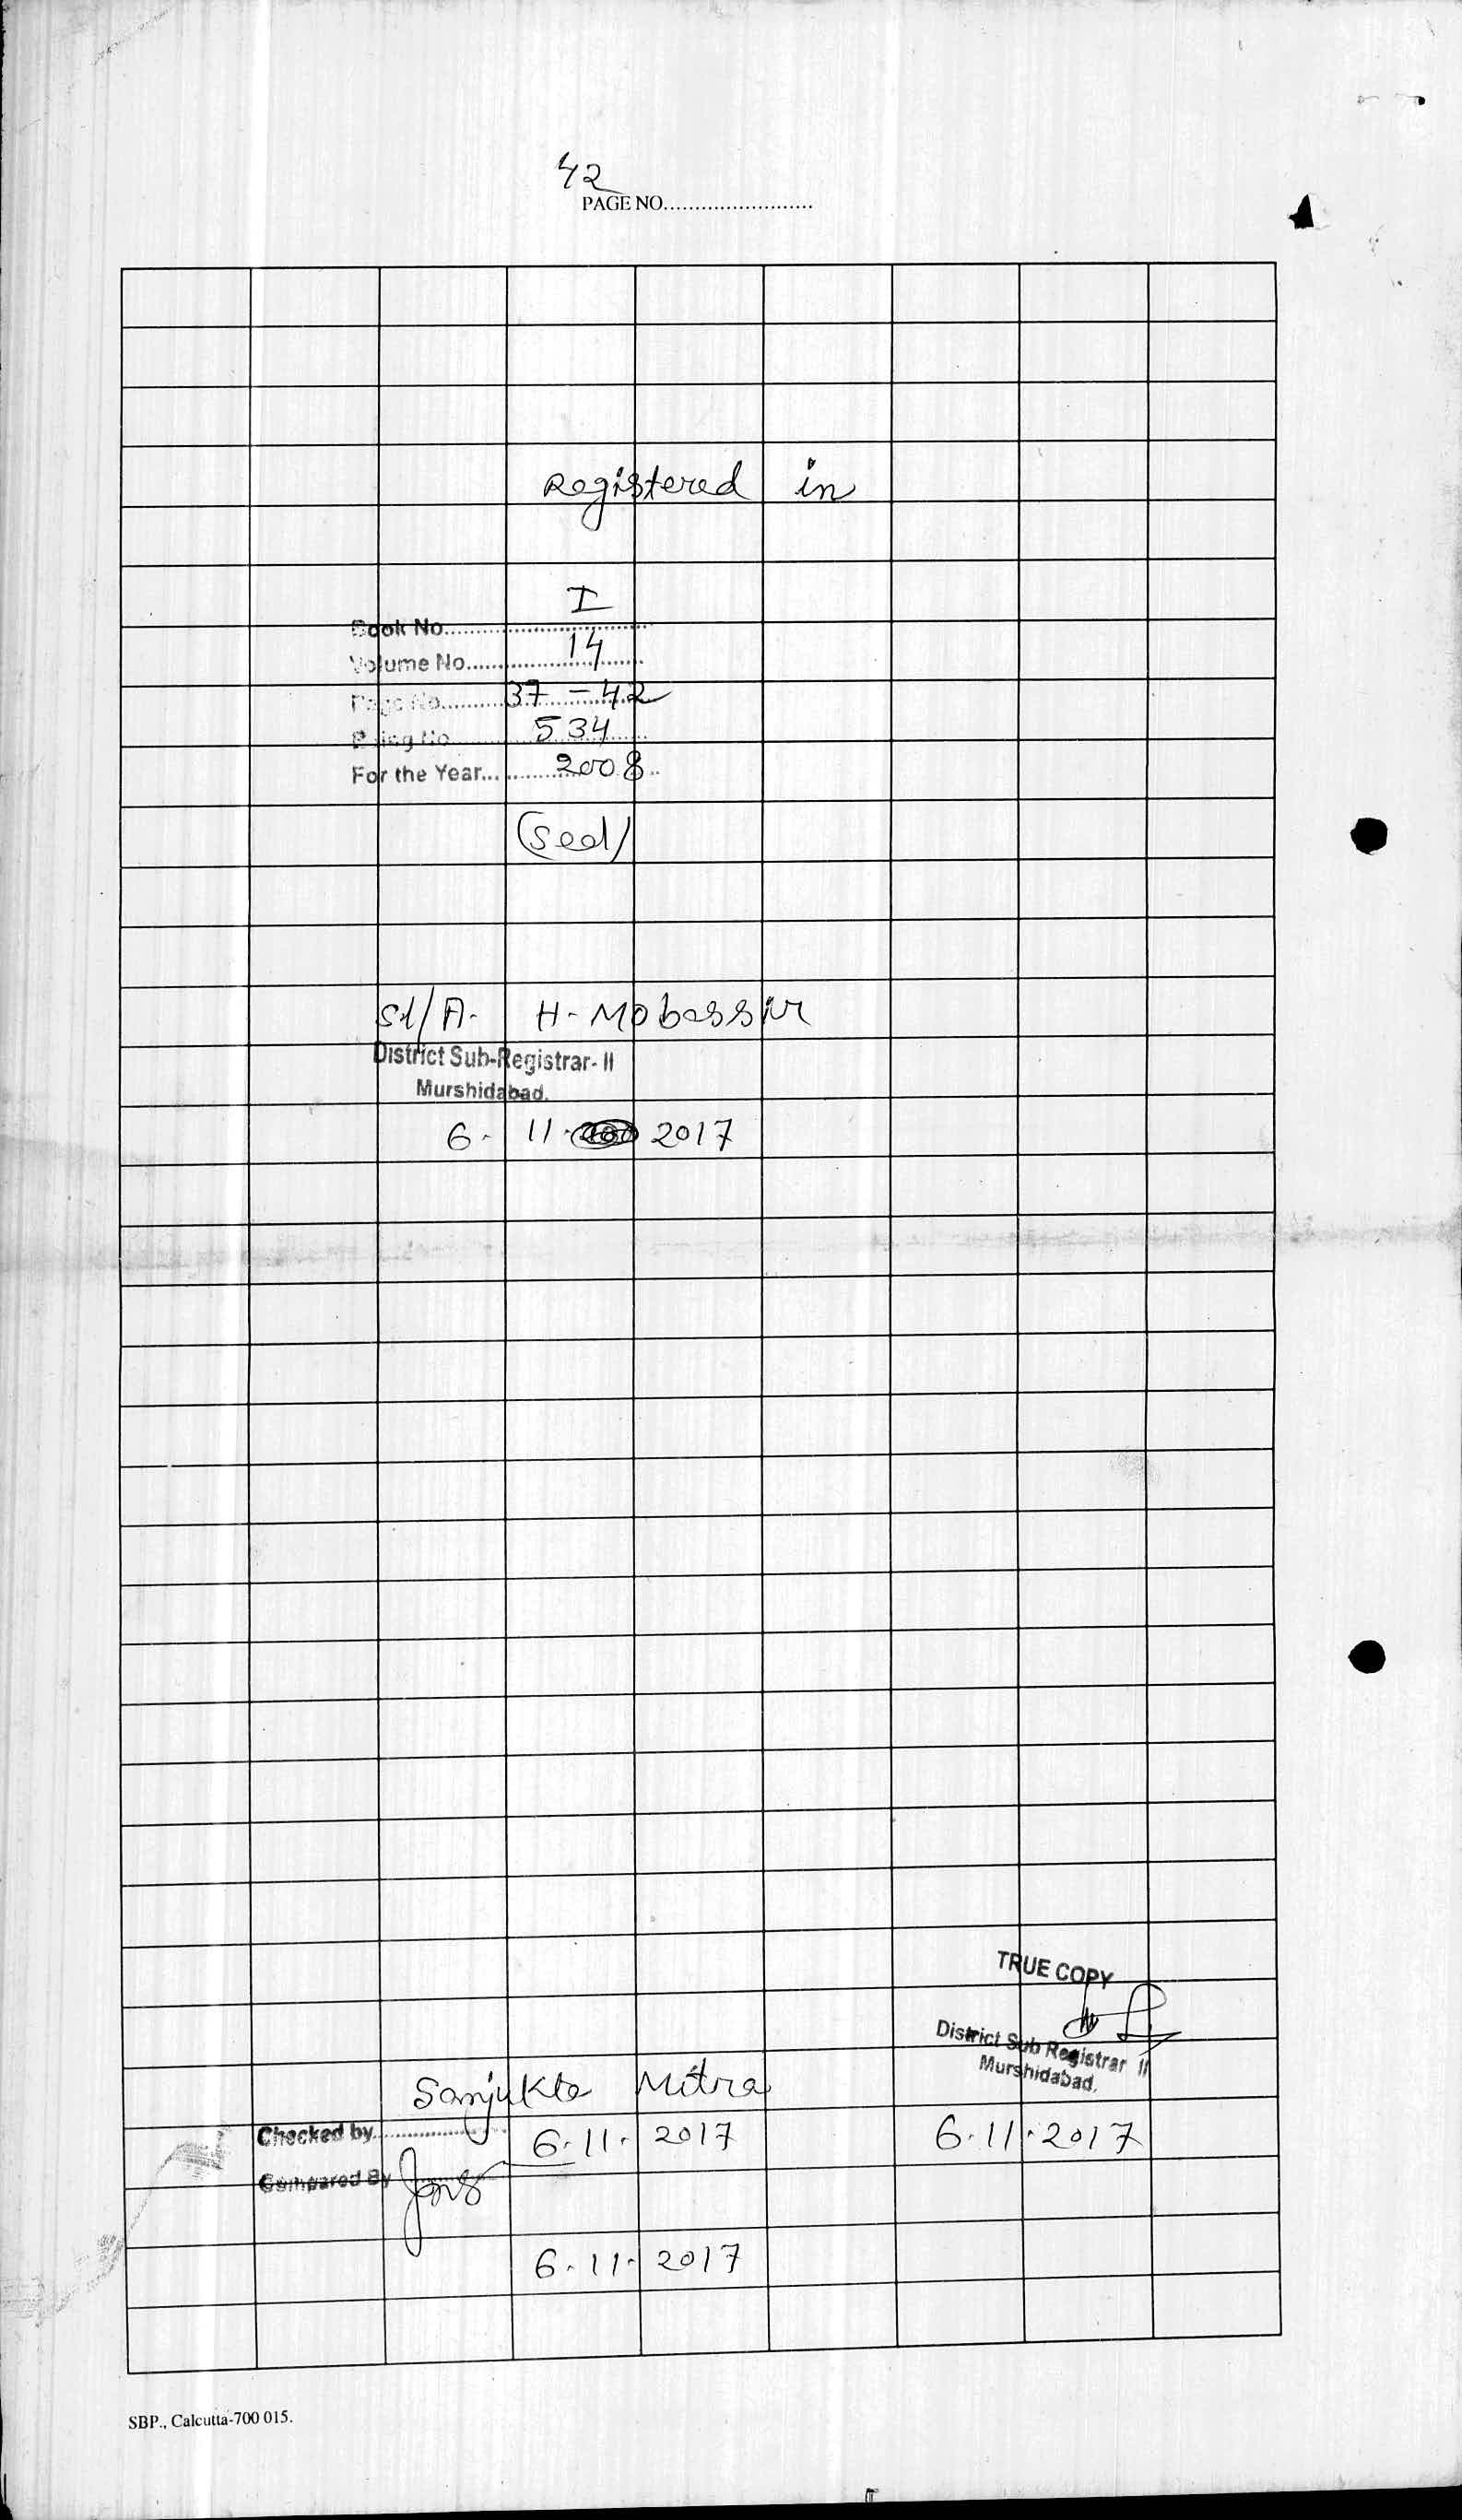 42
PAGE NO........................
Registered in
Book No. I
Volume No. 14
Page No. 37 - 42
Being No. 534
For the Year... 2008
(Seal)
Sd/ A. H. Mobassir
District Sub-Registrar- II
Murshidabad.
6. 11. 2017
TRUE COPY
District Sub Registrar II
Murshidabad.
6.11.2017
Sanjukta Mitra
Checked by
6.11.2017
Compared By
6.11.2017
SBP., Calcutta-700 015.